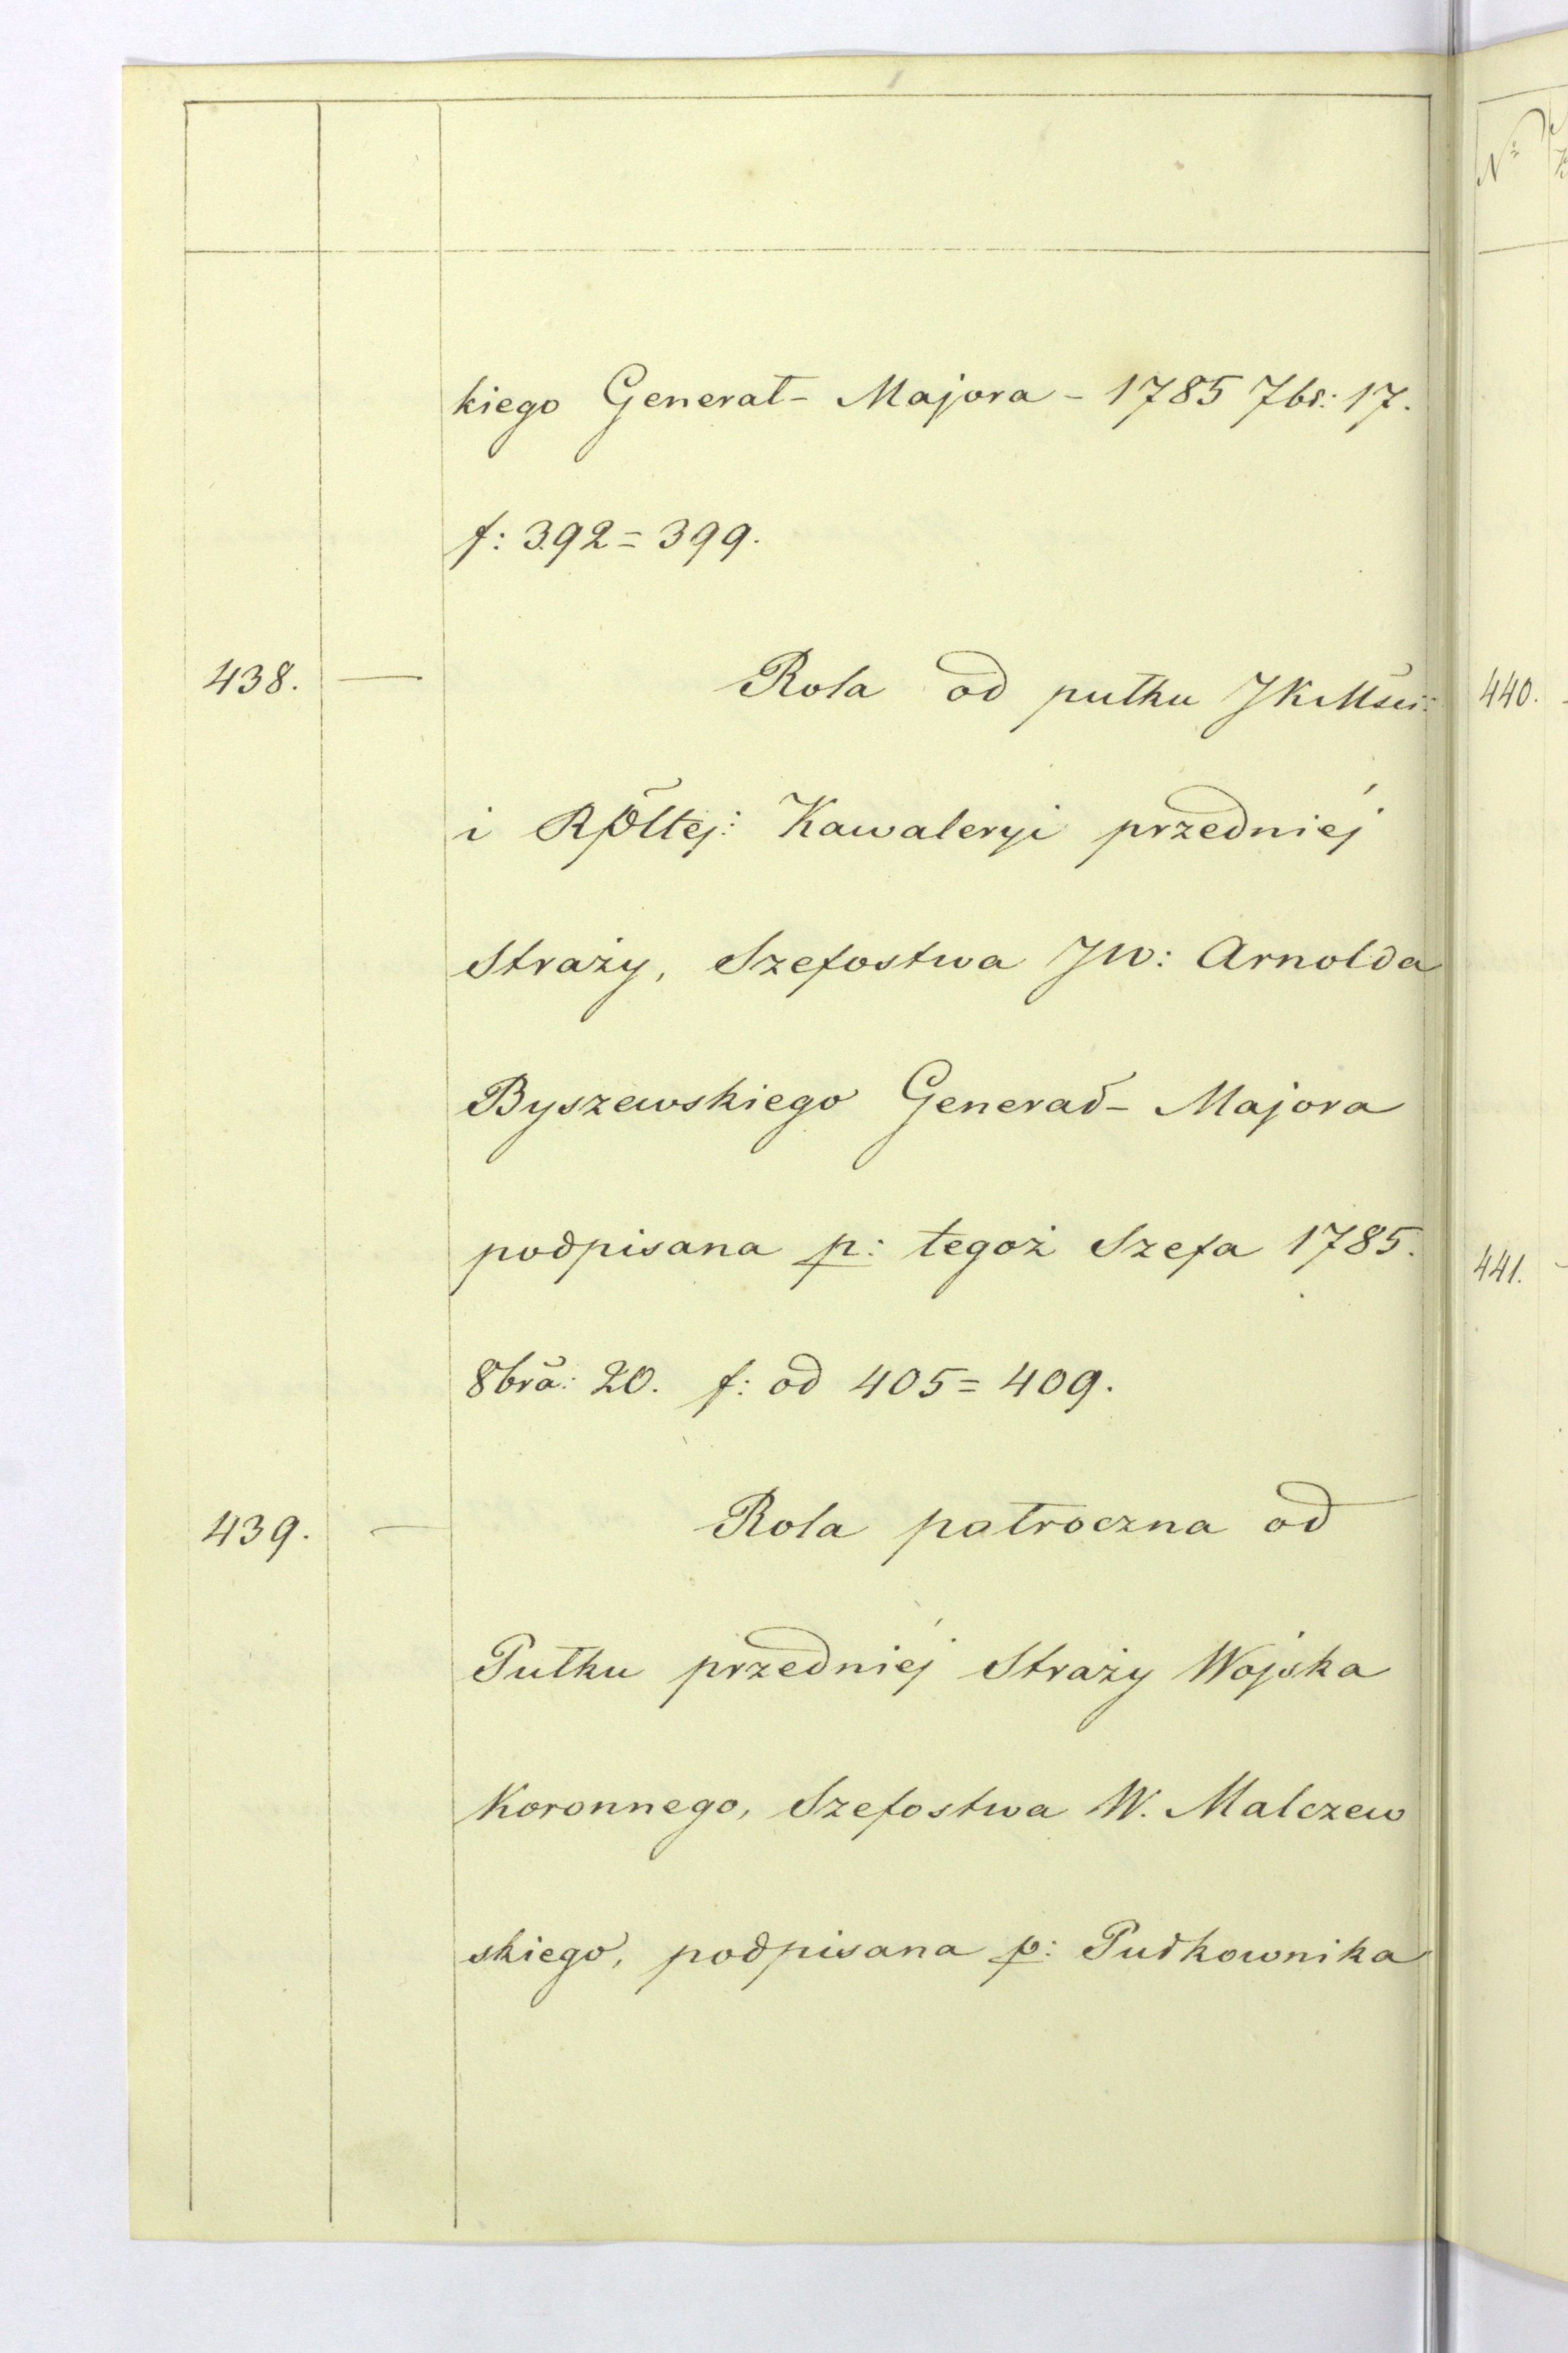 kiego Generał- Majora - 1785 7br: 17.
f: 392 = 399.
438. — Rola od pułku JKMści:
i Rpltej: Kawaleryi przedniéj
Straży, Szefostwa JW: Arnolda
Byszewskiego Generał- Majora
podpisana p: tegoż Szefa 1785.
8bra: 20. f: od 405 = 409.
439. — Rola połroczna od
Pułku przedniéj Straży Wojska
Koronnego, Szefostwa W. Malczew
skiego, podpisana p: Pułkownika
No
440.
441.